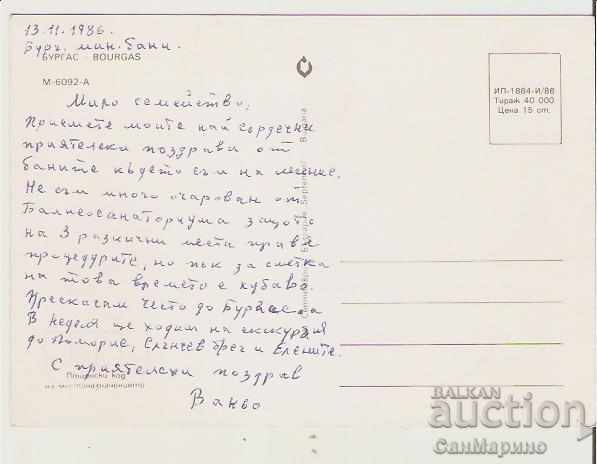 13.11.1986.
Бург. мин. бани.
БУРГАС - BOURGAS
М-6092-А
ИП-1884-И/86
Тираж 40 000
Цена 15 ст.
Мило семейство,
Приемете моите най сърдечни
приятелски поздрави от
баните където съм на лечение.
Не съм много очарован от
Балнеосанаториума защото
на 3 различни места правя
процедурите, но пък за сметка
на това времето е хубаво.
Прескачам често до Бургас, а
В неделя ще ходим на екскурзия
до Поморие, Слънчев бряг и Елените.
С приятелски поздрав
Пощенски код
на местоназначението
BALKAN
auction
СанМарино